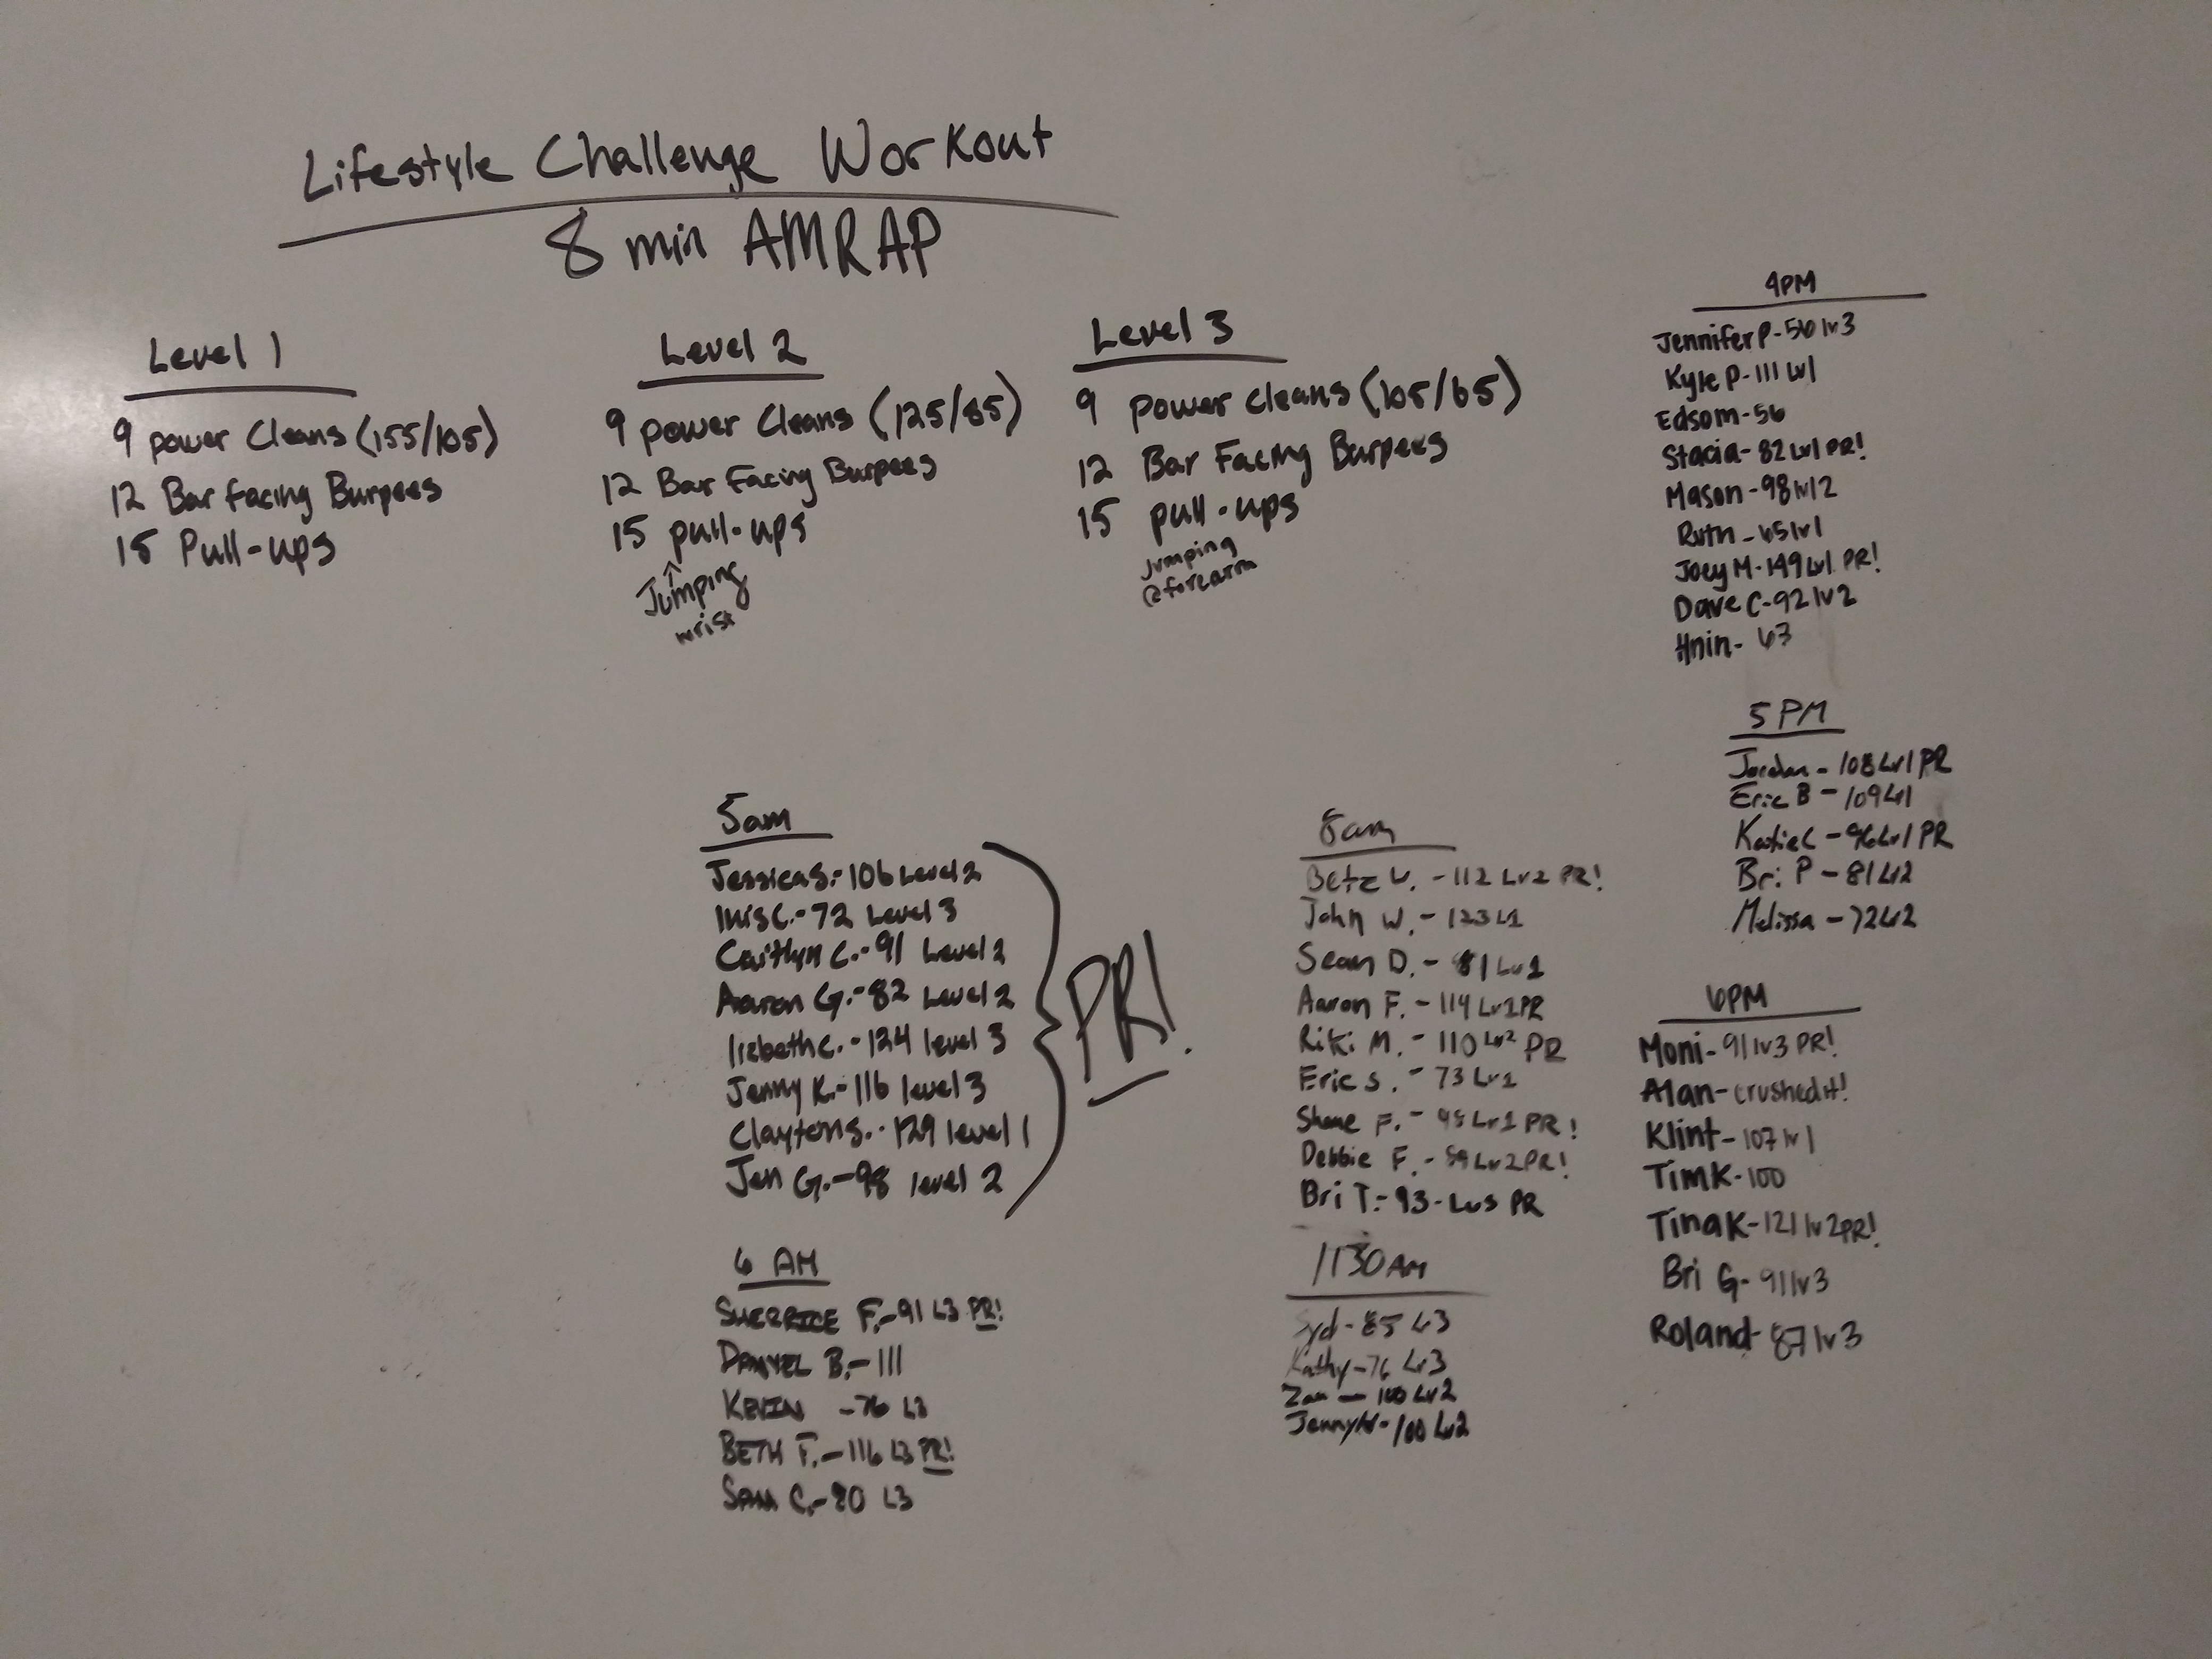 Lifestyle Challenge Workout
8 min AMRAP
Level 1
9 power Cleans (155/105)
12 Bar facing Burpees
15 Pull-ups
Level 2
9 power Cleans (125/85)
12 Bar Facing Burpees
15 pull-ups
Jumping
wrist
Level 3
9 power cleans (105/65)
12 Bar Facing Burpees
15 pull-ups
Jumping
@forearm
5am
Jessica S.- 106 Level 2
C.- 72 Level 3
Caitlyn C.- 91 Level 2
Aaron G.- 82 Level 2
lizbeth C.- 124 level 3
Jenny K.- 116 level 3
Clayton S.- 129 level 1
Jen G.- 98 level 2
PR!
6 AM
SHERRICE F.- 91 L3 PR!
DANYEL B.- 111
KEVIN - 76 L3
BETH F.- 116 L3 PR!
SAM C.- 80 L3
8am
- 112 Lv2 PR!
John W. - 123 L1
Sean D. - 81 Lv1
Aaron F. - 114 PR
Riki M. - 110 Lv2 PR
Eric S. - 73 Lv1
Shane F. - Lv1 PR!
Debbie F. - Lv2 PR!
Bri T.- 93 - Lv3 PR
1130 AM
Syd - 85 L3
Kathy - 76 Lv3
Zan - 100 Lv2
Jenny W - 100 Lv2
4PM
Jennifer P - 56 lv3
Kyle P - 111 Lvl
Edsom - 56
Stacia - 82 Lv1 PR!
Mason - 98 lvl2
Ruth - 65 lv1
Joey M - 149 Lv1 PR!
Dave C - 92 lv2
Hnin - 63
5 PM
Jordan - 108 Lv1 PR
Eric B - 109 Lv1
Katie C - 96 Lv1 PR
Bri P - 81 Lv2
Melissa - 72 Lv2
6PM
Moni - 91 lv3 PR!
Alan - crushed it!
Klint - 107 lv1
Tim K - 100
Tina K - 121 lv2 PR!
Bri G - 91 lv3
Roland - 87 lv3